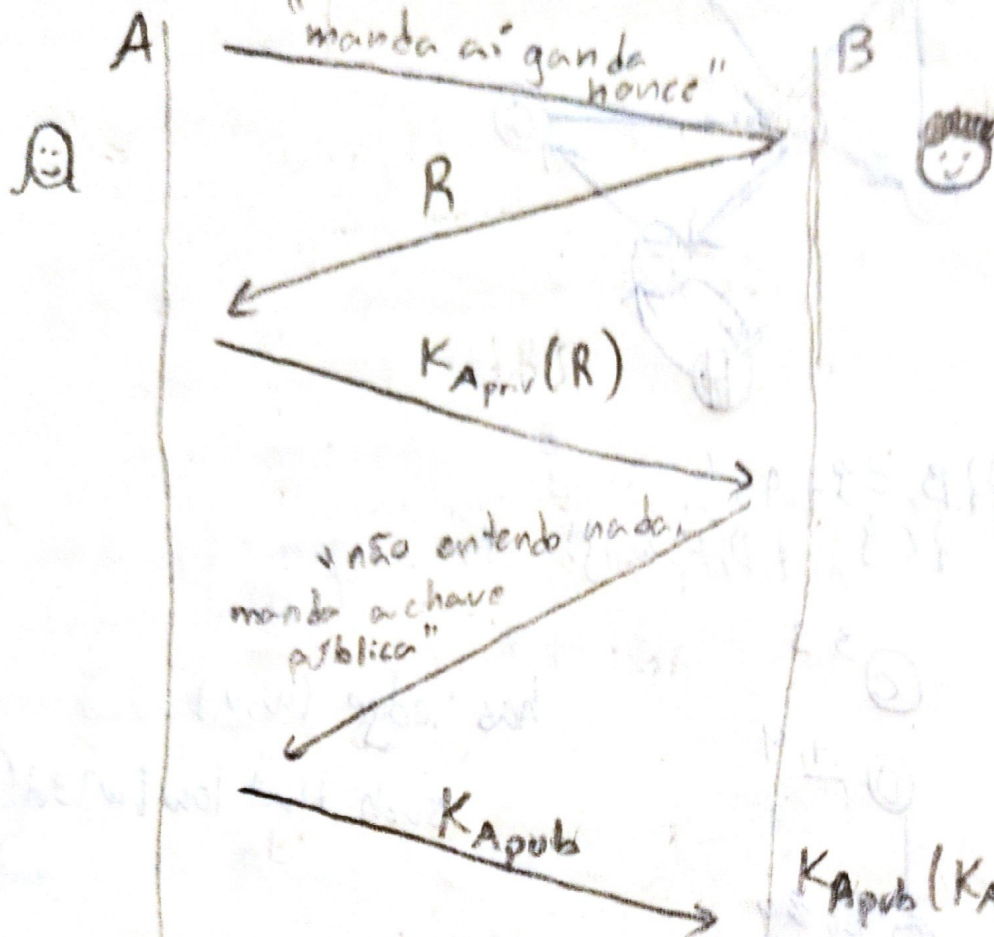 A
"manda aí ganda
nonce"
B
R
K_Apriv(R)
"não entendo nada,
manda a chave
pública"
K_Apub
K_Apub(K_A